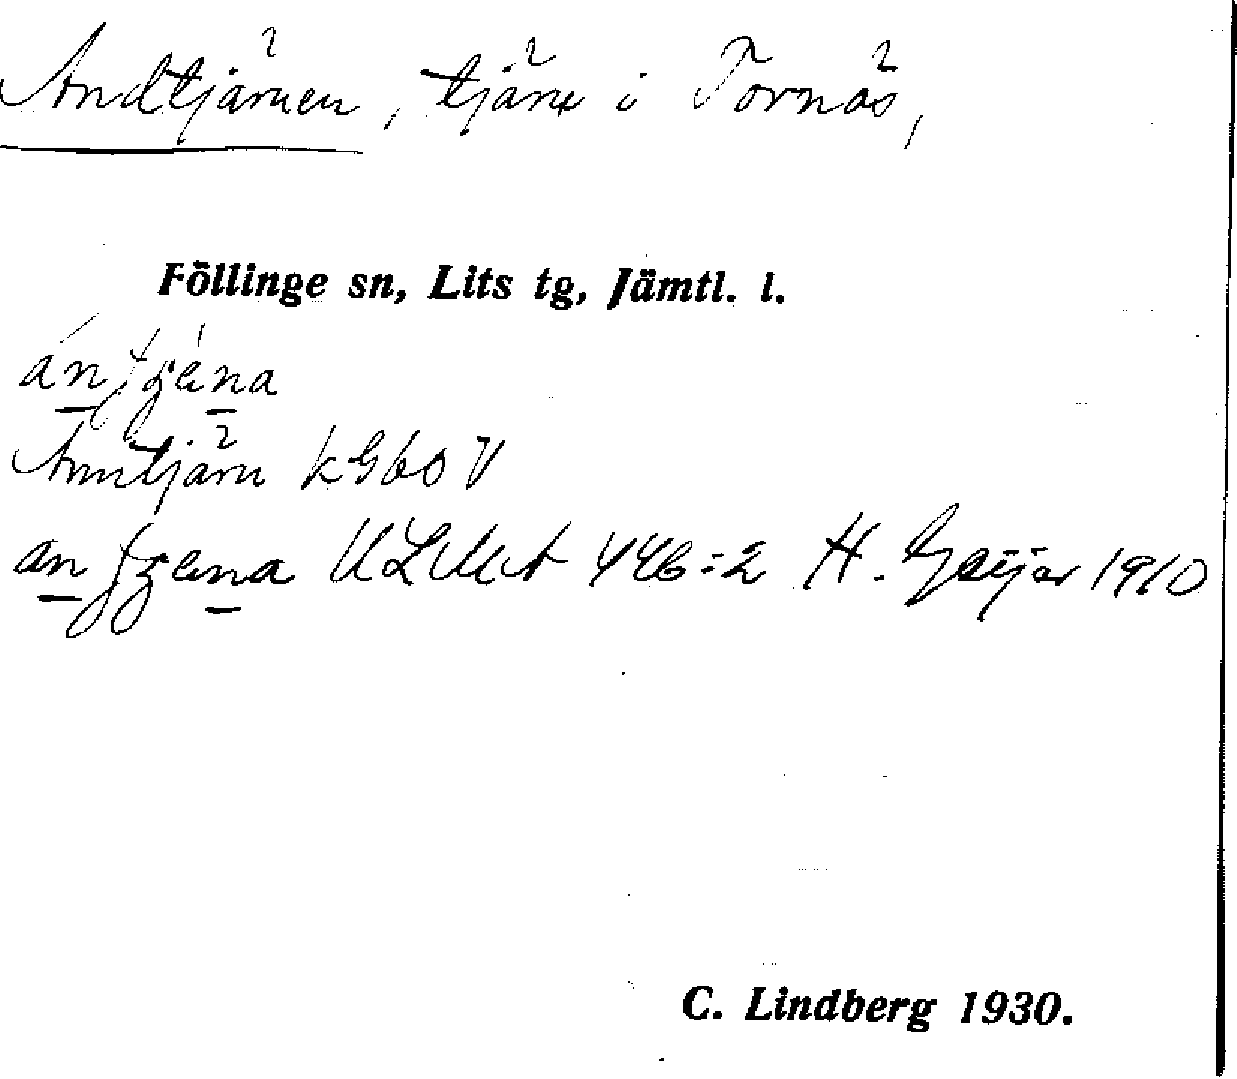 Andtjärnen, tjärn i Tornäs,
Föllinge sn, Lits tg, Jämtl. l.
Anntjärn kGbo V
ULMA 446:2 H. Geijer 1910
C. Lindberg 1930.